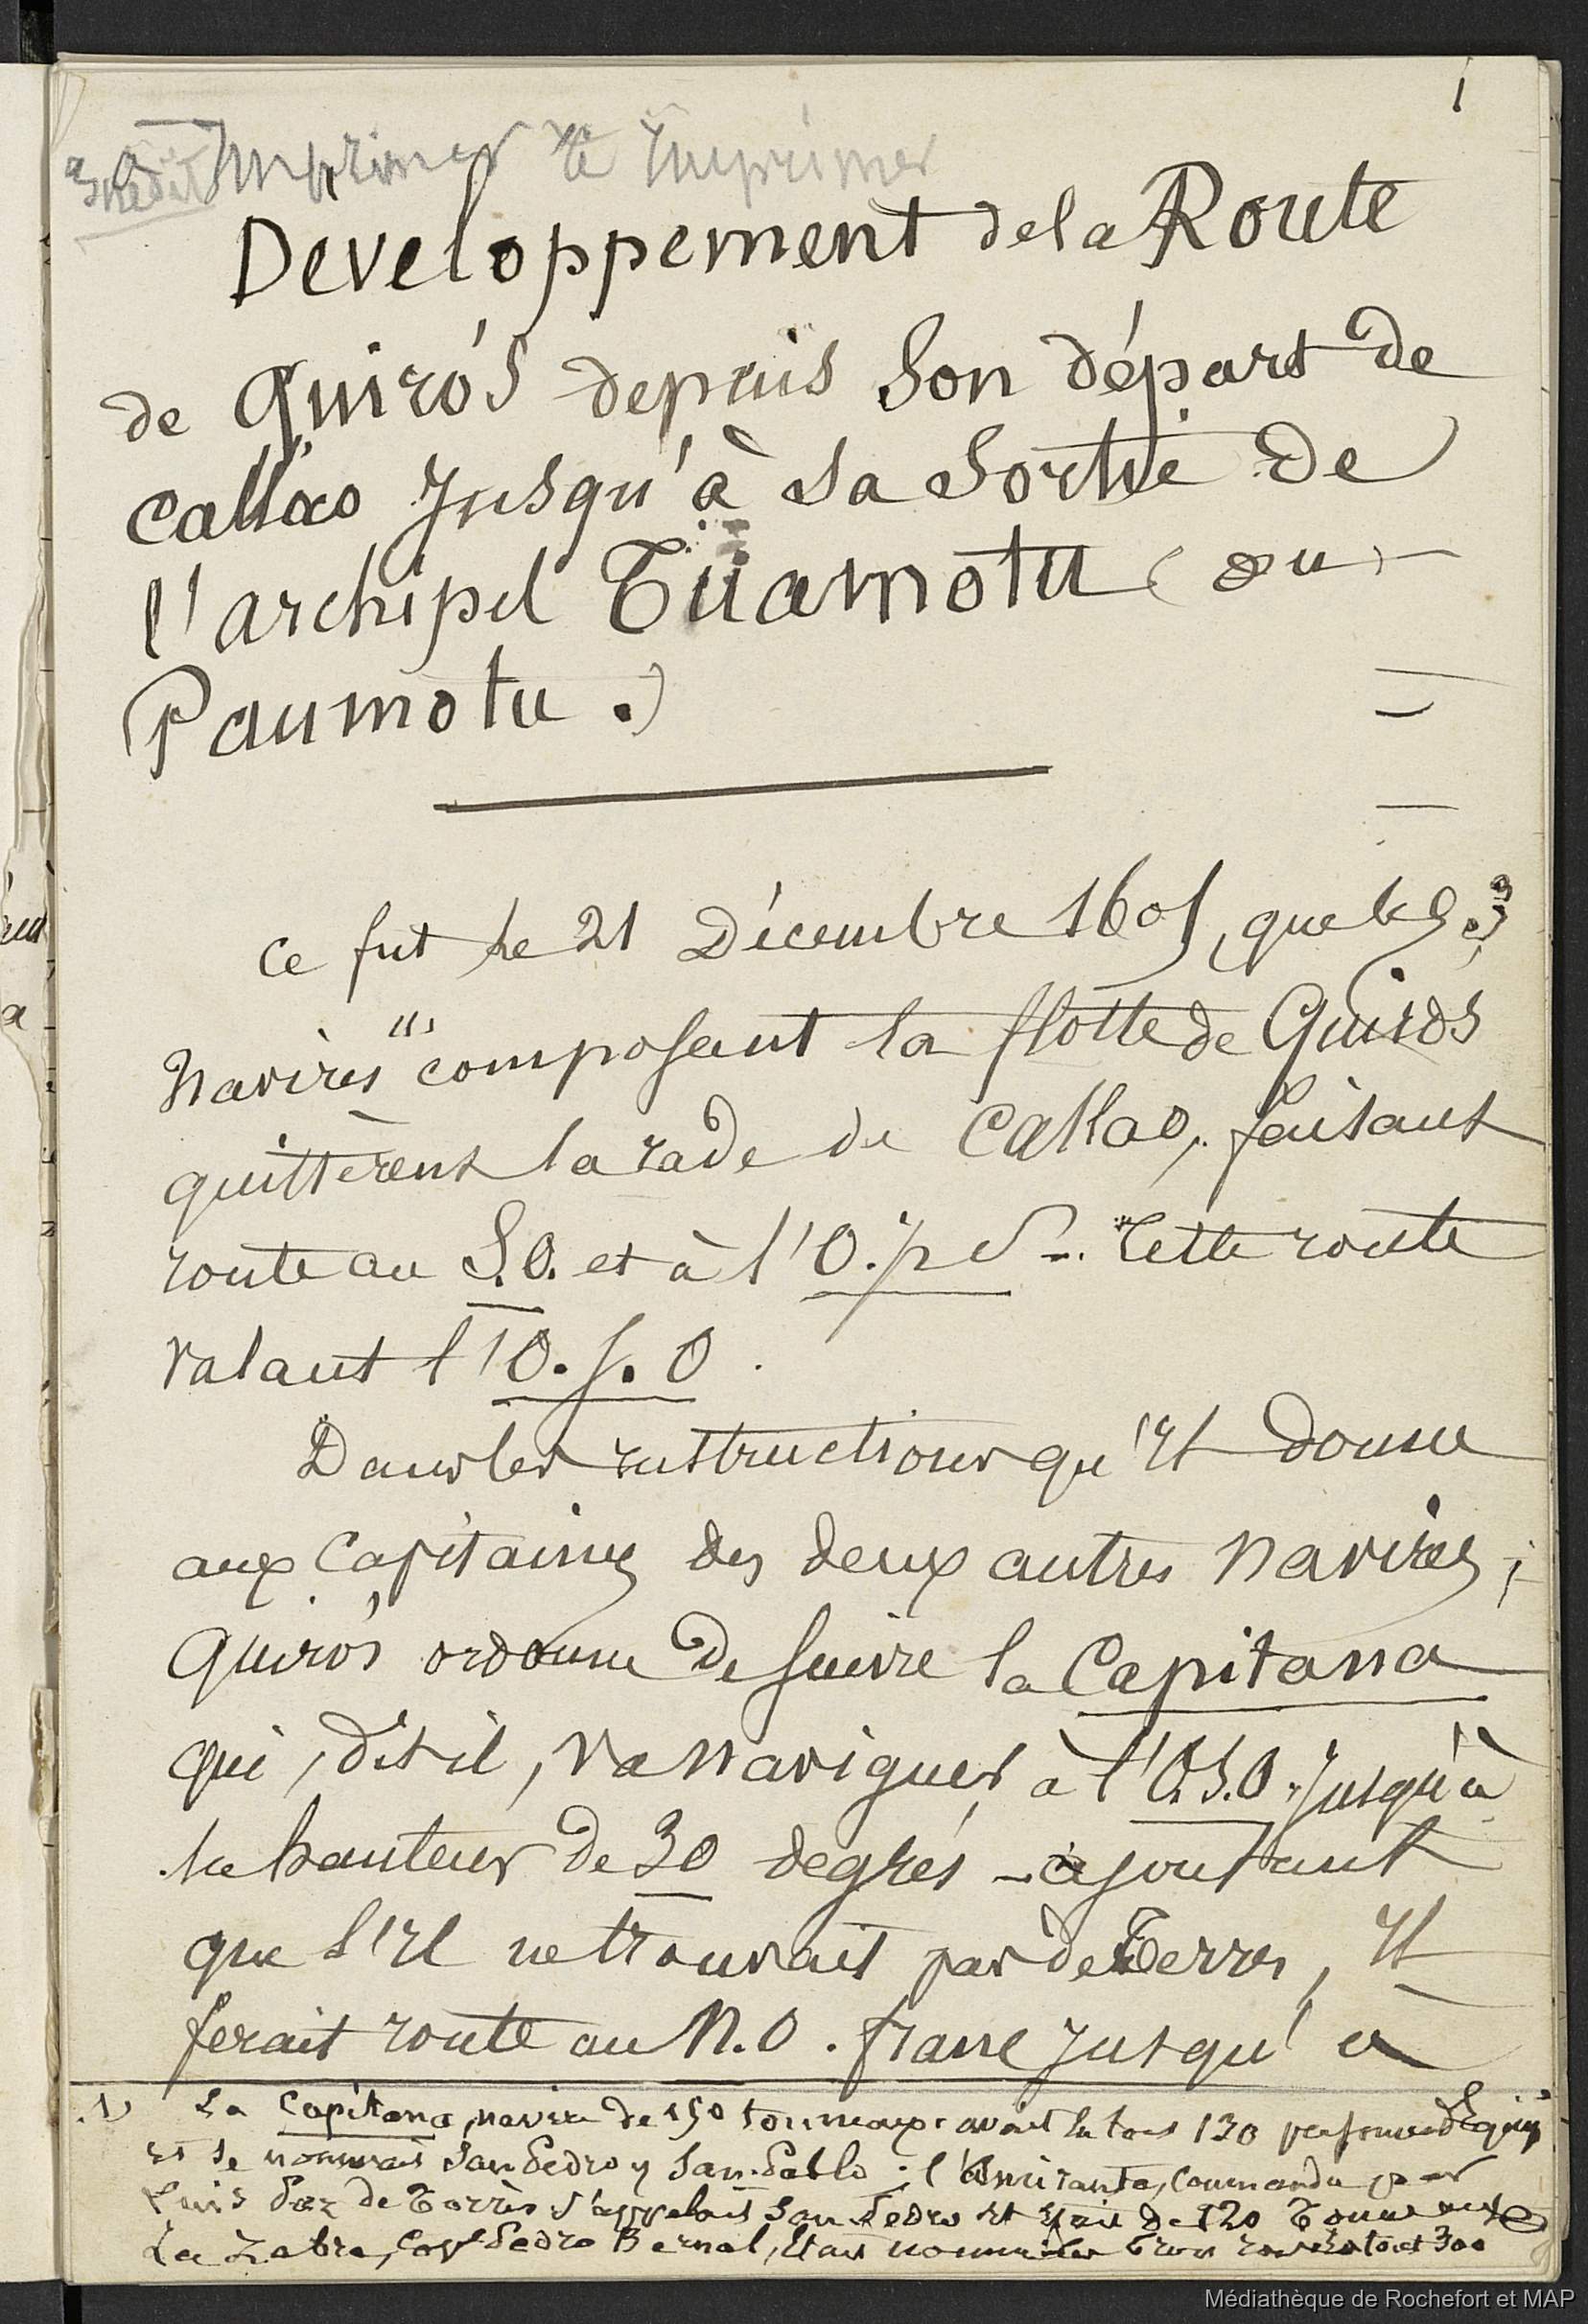 1
à Imprimer à Imprimer
Inédit
Développement de la Route
de Quirós depuis son départ de
Callao jusqu'à sa sortie de
l'archipel Tuamotu (ou
Paumotu.)
Ce fut le 21 Décembre 1605, que les 3
navires (1) composant la flotte de Quirós
quittèrent la rade du Callao, faisant
route au S.O. et à l'O. p S. Cette route
valant l'O.S.O.
Dans les instructions qu'il donne
aux Capitaines des deux autres navires,
Quirós ordonne de suivre la Capitana
qui, dit-il, va naviguer à l'O.S.O. jusqu'à
la hauteur de 30 degrés - ajoutant
que s'il ne trouvait pas de Terres, il
ferait route au N.O. franc jusqu'à
(1) La Capitana, navire de 150 tonneaux avait en tout 130 personnes d'Equip
et se nommait San Pedro y San Pablo; l'Amiranta, commandée par
Luis Vaz de Torrès s'appelait San Pedro et était de 120 Tonneaux
La Zabra, Cap Pedro Bernal, était trois 300
Médiathèque de Rochefort et MAP